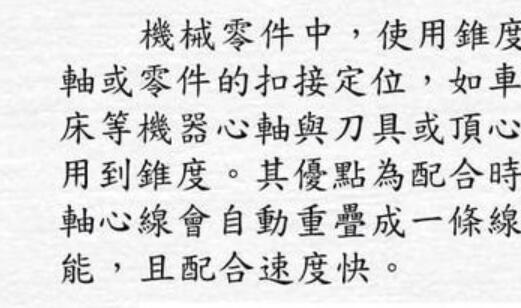 機械零件中，使用錐度
軸或零件的扣接定位，如車
床等機器心軸與刀具或頂心
用到錐度。其優點為配合時
軸心線會自動重疊成一條線
能，且配合速度快。